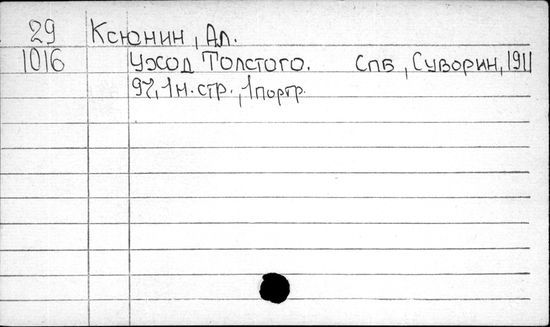 29 Ксюнин, Ал.
1016 Уход Толстого. Спб, Суворин, 1911
97, 1 н. стр., 1 портр.